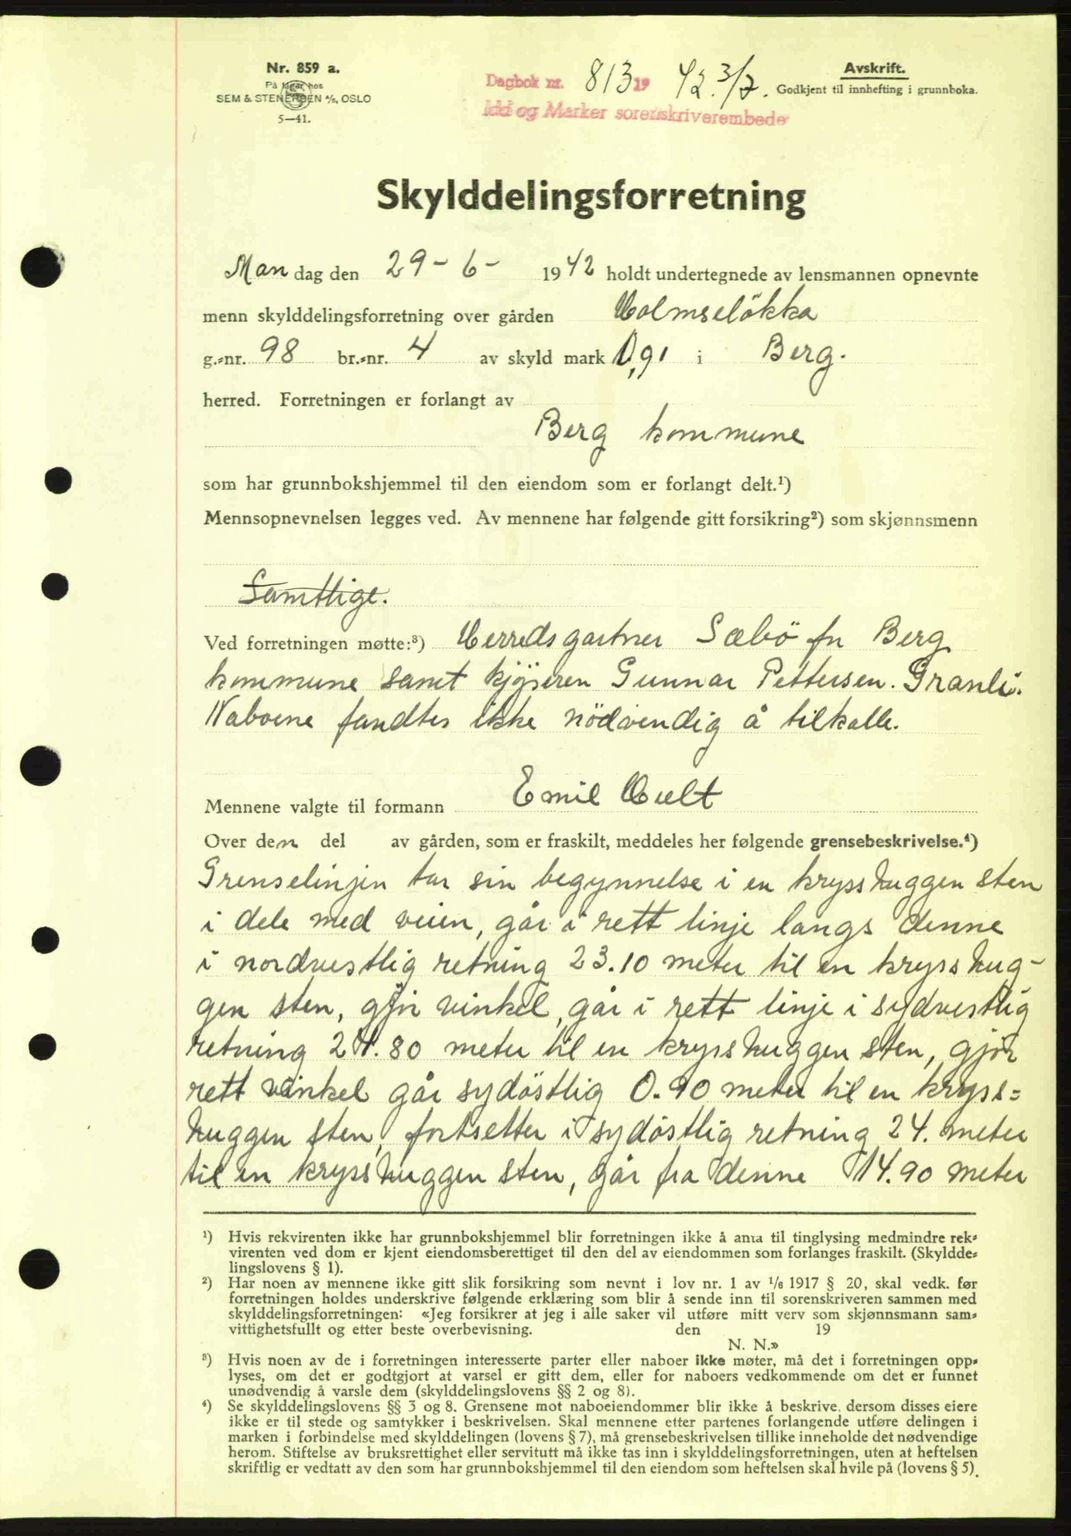 Nr. 859 a.
På lager hos
SEM & STENERSEN A/S, OSLO
5—41.
Dagbok nr. 813 19 42. 3/7.
Idd og Marker sorenskriverembede
Avskrift.
Godkjent til innhefting i grunnboka.
Skylddelingsforretning
Man dag den 29 - 6 - 1942 holdt undertegnede av lensmannen opnevnte
menn skylddelingsforretning over gården Holmseløkka
g.-nr. 98 br.-nr. 4 av skyld mark 0,91 i Berg.
herred. Forretningen er forlangt av
Berg kommune
som har grunnbokshjemmel til den eiendom som er forlangt delt.¹)
Mennsopnevnelsen legges ved. Av mennene har følgende gitt forsikring²) som skjønnsmenn
Samtlige.
Ved forretningen møtte:³) Herredsgartner Sæbö for Berg
kommune samt kjøperen Gunnar Pettersen. Granli.
Naboene fandtes ikke nödvendig å tilkalle.
Mennene valgte til formann Emil Hult
Over den del av gården, som er fraskilt, meddeles her følgende grensebeskrivelse.⁴)
Grenselinjen tar sin begynnelse i en krysshuggen sten
i dele med veien, går i rett linje langs denne
i nordvestlig retning 23.10 meter til en krysshug-
gen sten, gjør vinkel, går i rett linje i sydvestlig
retning 24.80 meter til en krysshuggen sten, gjør
rett vinkel går sydöstlig 0.90 meter til en kryss=
huggen sten, fortsetter i sydöstlig retning 24. meter
til en krysshuggen sten, går fra denne 14.90 meter
¹) Hvis rekvirenten ikke har grunnbokshjemmel blir forretningen ikke å anta til tinglysing medmindre rek-
virenten ved dom er kjent eiendomsberettiget til den del av eiendommen som forlanges fraskilt. (Skyldde-
lingslovens § 1).
²) Har noen av mennene ikke gitt slik forsikring som nevnt i lov nr. 1 av 1/6 1917 § 20, skal vedk. før
forretningen holdes underskrive følgende erklæring som blir å sende inn til sorenskriveren sammen med
skylddelingsforretningen: «Jeg forsikrer at jeg i alle saker vil utføre mitt verv som skjønnsmann sam-
vittighetsfullt og etter beste overbevisning. den 19
N. N.»
³) Hvis noen av de i forretningen interesserte parter eller naboer ikke møter, må det i forretningen opp-
lyses, om det er godtgjort at varsel er gitt dem, eller for naboers vedkommende om det er funnet
unødvendig å varsle dem (skylddelingslovens §§ 2 og 8).
⁴) Se skylddelingslovens §§ 3 og 8. Grensene mot naboeiendommer blir ikke å beskrive, dersom disses eiere
ikke er til stede og samtykker i beskrivelsen. Skal mennene etter partenes forlangende utføre delingen i
marken i forbindelse med skylddelingen (lovens § 7), må grensebeskrivelsen tillike inneholde det nødvendige
herom. Stiftelse av bruksrettighet eller servitutt må ikke tas inn i skylddelingsforretningen, uten at heftelsen
skriftlig er vedtatt av den som har grunnbokshjemmel til den eiendom som heftelsen skal hvile på (lovens § 5).